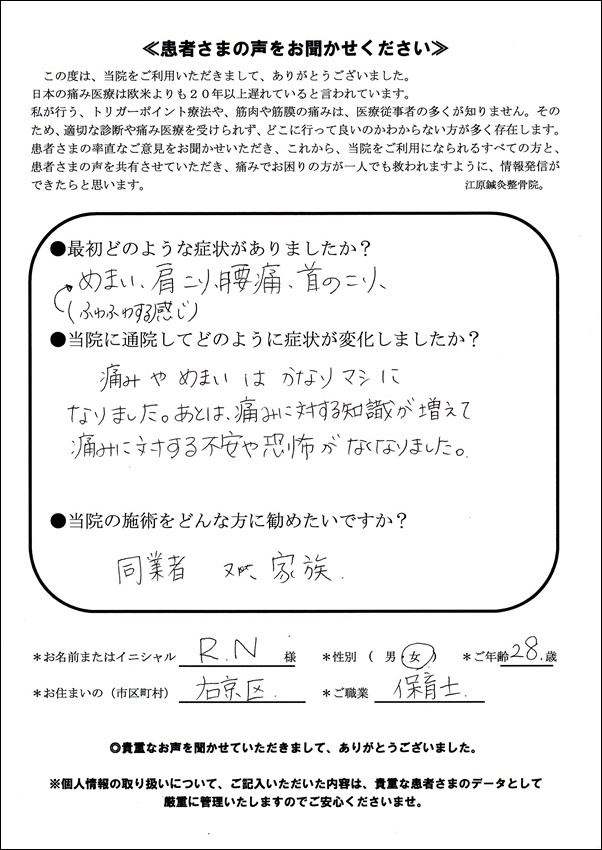 ≪患者さまの声をお聞かせください≫
この度は、当院をご利用いただきまして、ありがとうございました。
日本の痛み医療は欧米よりも２０年以上遅れていると言われています。
私が行う、トリガーポイント療法や、筋肉や筋膜の痛みは、医療従事者の多くが知りません。その
ため、適切な診断や痛み医療を受けられず、どこに行って良いのかわからない方が多く存在します。
患者さまの率直なご意見をお聞かせいただき、これから、当院をご利用になられるすべての方と、
患者さまの声を共有させていただき、痛みでお困りの方が一人でも救われますように、情報発信が
できたらと思います。 江原鍼灸整骨院。
●最初どのような症状がありましたか？
めまい、肩こり、腰痛、首のこり、
(ふわふわする感じ)
●当院に通院してどのように症状が変化しましたか？
痛みやめまいはかなりマシに
なりました。あとは、痛みに対する知識が増えて
痛みに対する不安や恐怖がなくなりました。
●当院の施術をどんな方に勧めたいですか？
同業者 家族.
＊お名前またはイニシャル R.N 様 ＊性別（ 男・女 ） ＊ご年齢 28.歳
＊お住まいの（市区町村） 右京区. ＊ご職業 保育士.
◎貴重なお声を聞かせていただきまして、ありがとうございました。
※個人情報の取り扱いについて、ご記入いただいた内容は、貴重な患者さまのデータとして
厳重に管理いたしますのでご安心くださいませ。